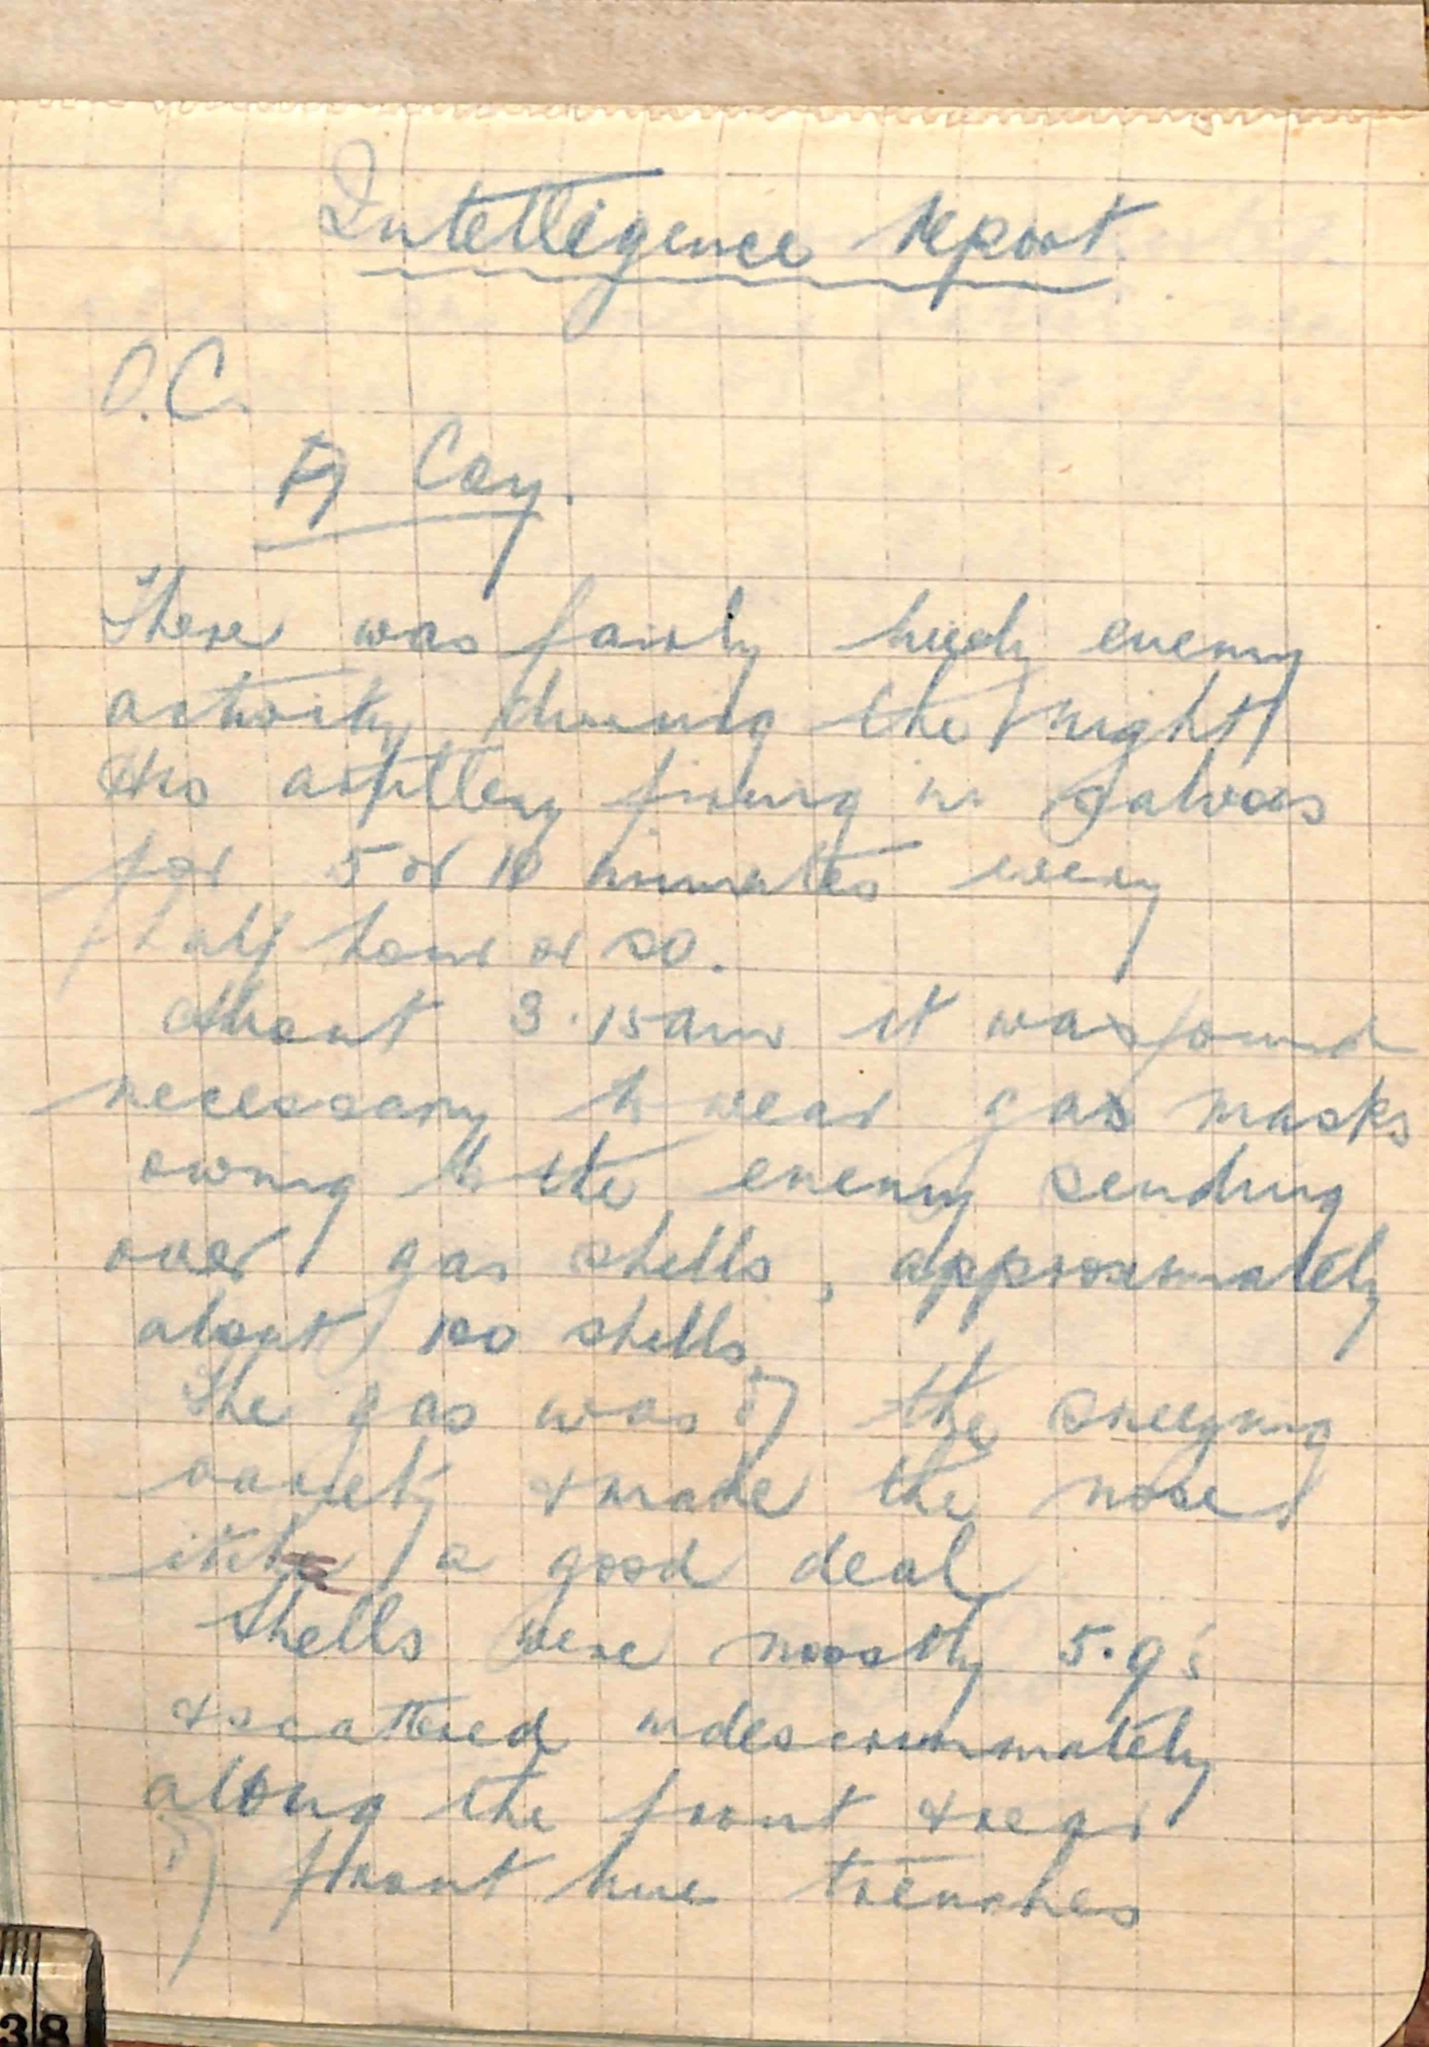 Intelligence report.
O.C.
A Coy.
There was fairly lively enemy
activity during the night
His artillery firing in salvoes
for 5 or 10 minutes every
half hour or so.
About 3.15am it was found
necessary to wear gas masks
owing to the enemy sending
over gas shells, approximately
about 100 shells.
The gas was of the sneezing
variety & made the nose
itch a good deal
Shells were mostly 5.9's
& scattered indescriminately
along the front & rear
of front line trenches
38